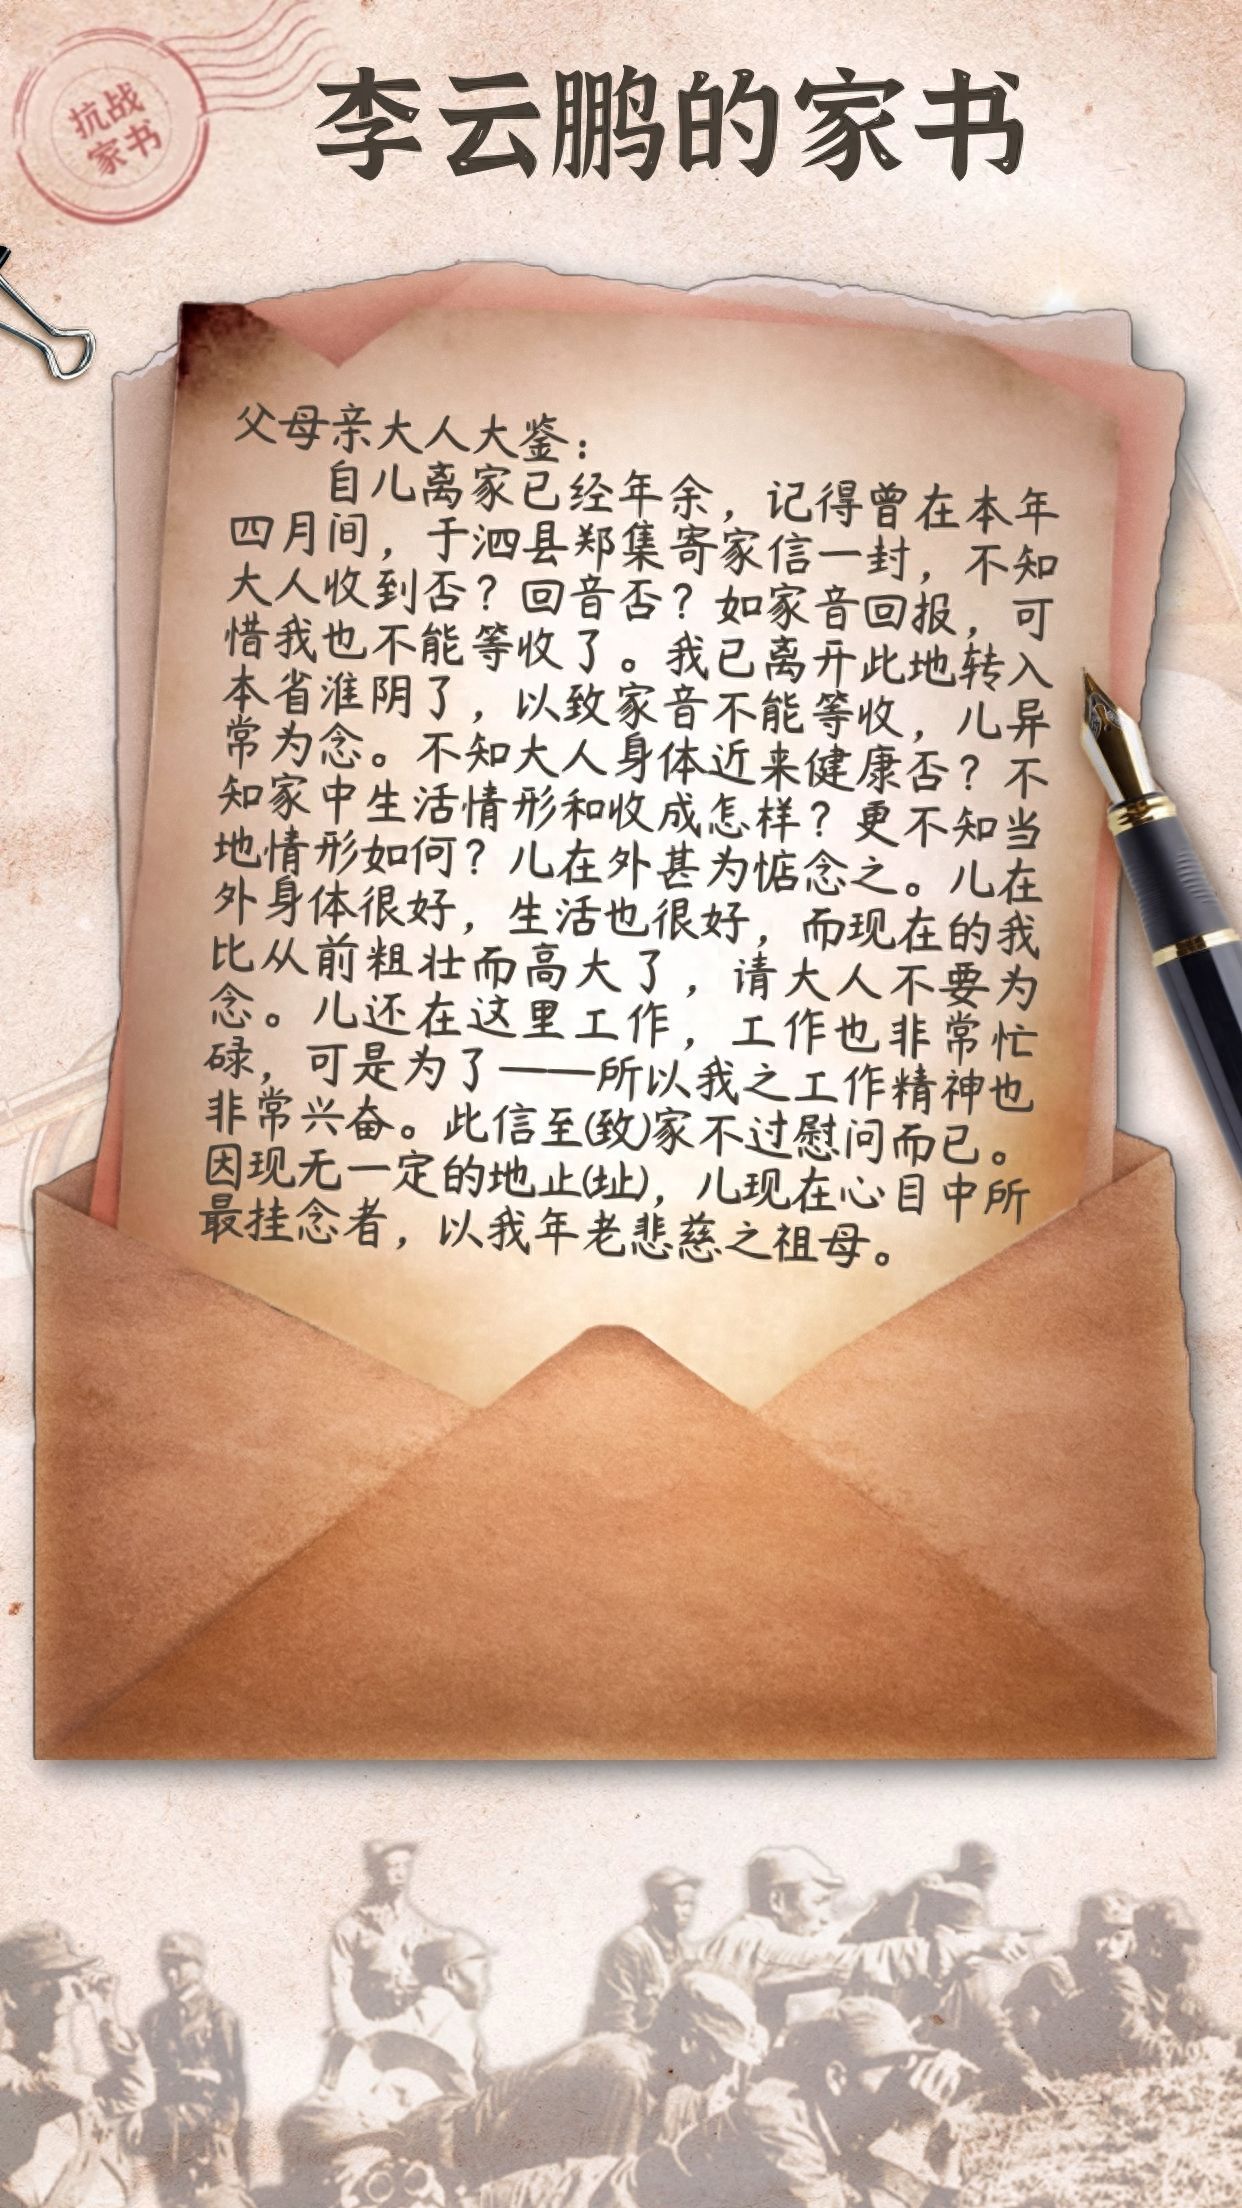 抗战
家书
李云鹏的家书
父母亲大人大鉴：
自儿离家已经年余，记得曾在本年
四月间，于泗县郑集寄家信一封，不知
大人收到否？回音否？如家音回报，可
惜我也不能等收了。我已离开此地转入
本省淮阴了，以致家音不能等收，儿异
常为念。不知大人身体近来健康否？不
知家中生活情形和收成怎样？更不知当
地情形如何？儿在外甚为惦念之。儿在
外身体很好，生活也很好，而现在的我
比从前粗壮而高大了，请大人不要为
念。儿还在这里工作，工作也非常忙
碌，可是为了——所以我之工作精神也
非常兴奋。此信至(致)家不过慰问而已。
因现无一定的地止(址)，儿现在心目中所
最挂念者，以我年老悲慈之祖母。